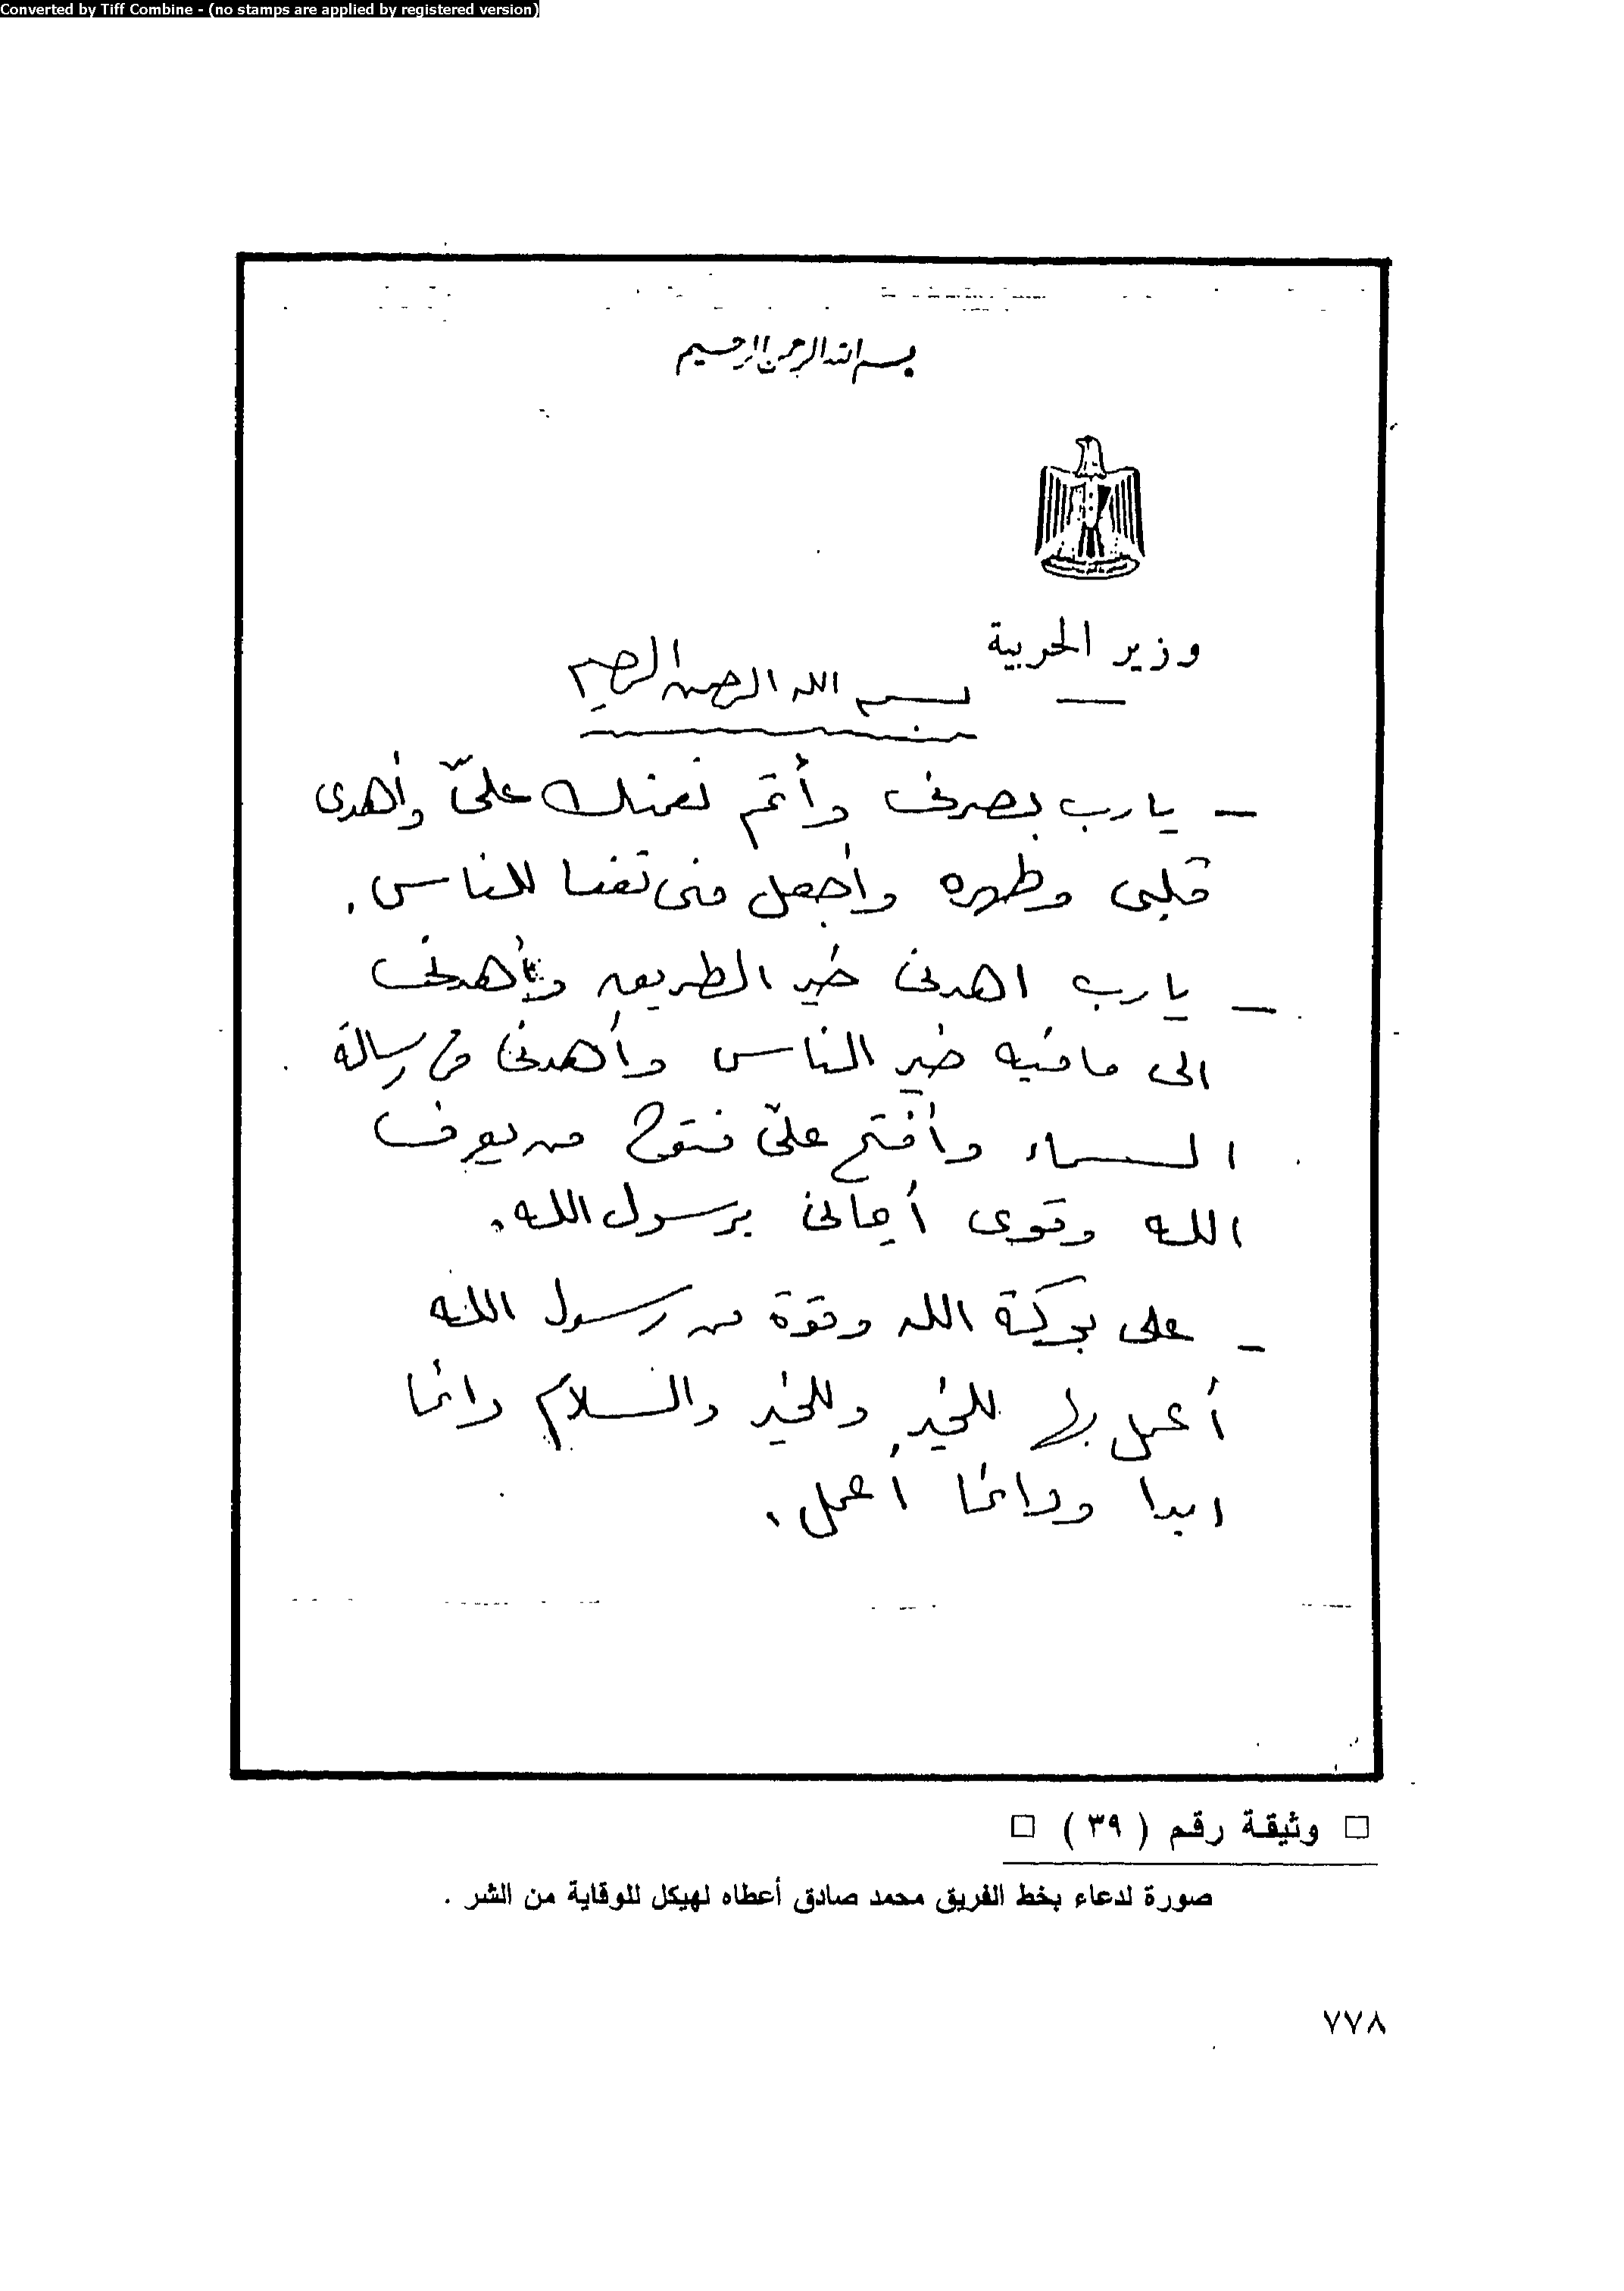 Converted by Tiff Combine - (no stamps are applied by registered version)
بسم الله الرحمن الرحيم
وزير الحربية
بسم الله الرحمن الرحيم
- يارب بصرنى وأتم نعمتك علىّ وأهدى
قلبى وطهره وأجعل منى نفعا للناس.
- يارب اهدنى خير الطريق وأهدنى
الى مافيه خير الناس وأهدنى من رسالة
السماء وأفتح علىّ فتوح من يعرف
الله وقوى أيمانى برسول الله.
- على بركة الله وقوة من رسول الله
أعمل بها للخير وللخير والسلام دائما
ابدا ودائما أعمل.
□ وثيقة رقم ( ٣٩ ) □
صورة لدعاء بخط الفريق محمد صادق أعطاه لهيكل للوقاية من الشر .
٧٧٨